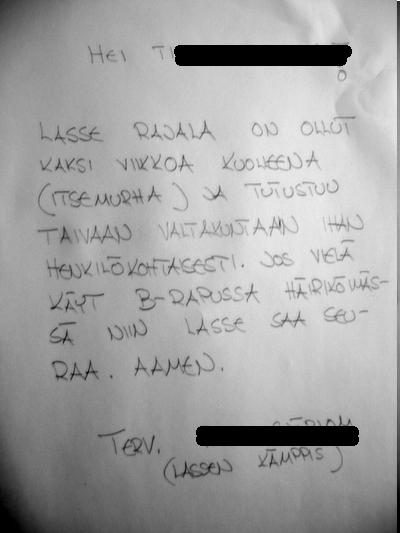 HEI
LASSE RAJALA ON OLLUT
KAKSI VIIKKOA KUOLLEENA
(ITSEMURHA) JA TUTUSTUU
TAIVAAN VALTAKUNTAAN IHAN
HENKILÖKOHTAISESTI. JOS VIELÄ
KÄYT B-RAPUSSA HÄIRIKÖIMÄS-
SÄ NIIN LASSE SAA SEU-
RAA. AAMEN.
TERV.
(LASSEN KÄMPPIS)